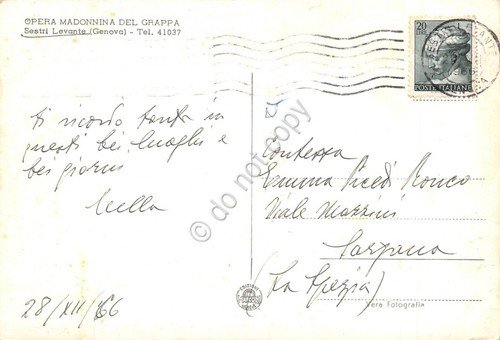 OPERA MADONNINA DEL GRAPPA
Sestri Levante (Genova) - Tel. 41037
20
POSTE ITALIANE
ti ricordo tanto in
questi bei luoghi e
bei giorni
28/XII/66
Contessa
Emma Picedi
Viale Mazzini
Sarzana
(La Spezia)
Vera Fotografia
© do not copy